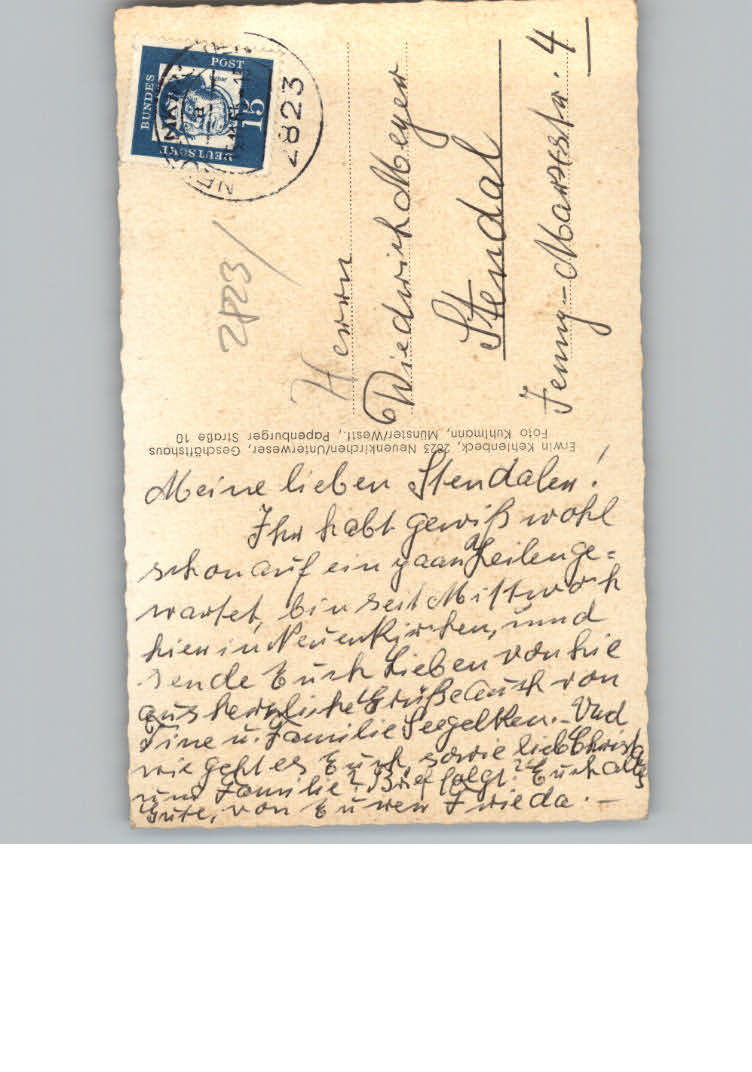 DEUTSCHE
BUNDES
POST
15
2823
2823
Herrn
Diedrich Meyer
Stendal
Jenny-Marxstr. 4
Erwin Kehlenbeck, 2823 Neuenkirchen/Unterweser, Geschäftshaus
Foto Kuhlmann, Münster/Westf., Papenburger Straße 10
Meine lieben Stendaler!
Ihr habt gewiß wohl
schon auf ein paar Zeilen ge=
wartet, bin seit Mittwoch
hier in Neuenkirchen, und
sende Euch Lieben von hie
aus herzliche Grüße auch von
Tine u. Familie Seegelken.- Und
wie geht es Euch, sowie lieb Christa
und Familie? Brief folgt! Euch alles
Gute, von Eurer Frieda.-